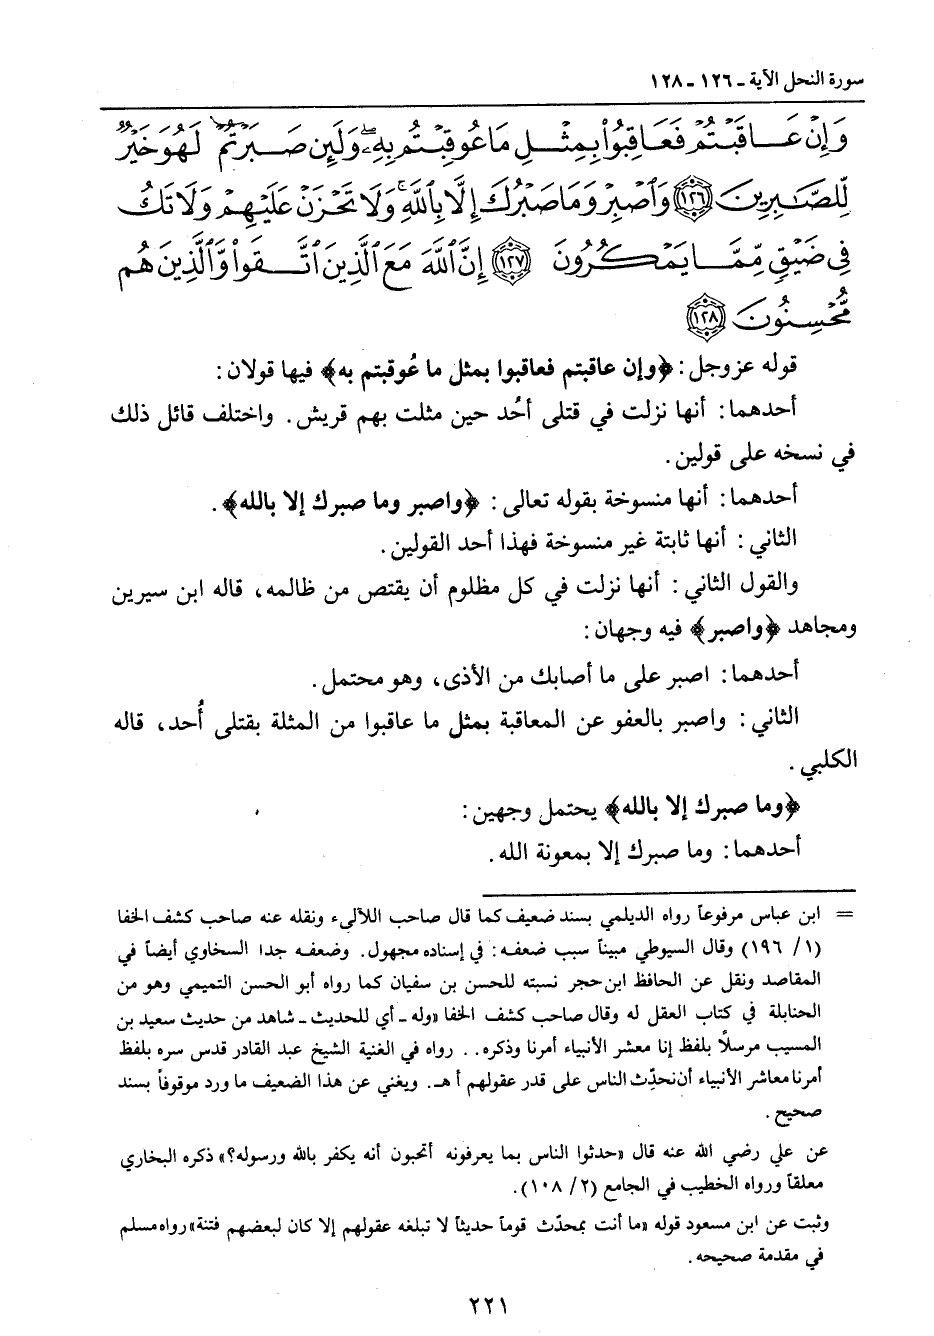 سورة النحل الآية ـ ١٢٦ ـ ١٢٨
وَإِنْ عَاقَبْتُمْ فَعَاقِبُوا۟ بِمِثْلِ مَا عُوقِبْتُم بِهِۦ ۖ وَلَئِن صَبَرْتُمْ لَهُوَ خَيْرٌ
لِّلصَّـٰبِرِينَ ﴿١٢٦﴾ وَٱصْبِرْ وَمَا صَبْرُكَ إِلَّا بِٱللَّهِ ۚ وَلَا تَحْزَنْ عَلَيْهِمْ وَلَا تَكُ
فِى ضَيْقٍ مِّمَّا يَمْكُرُونَ ﴿١٢٧﴾ إِنَّ ٱللَّهَ مَعَ ٱلَّذِينَ ٱتَّقَوا۟ وَّٱلَّذِينَ هُم
مُّحْسِنُونَ ﴿١٢٨﴾
قوله عز وجل: ﴿وإن عاقبتم فعاقبوا بمثل ما عُوقبتم به﴾ فيها قولان:
أحدهما: أنها نزلت في قتلى أحُد حين مثلت بهم قريش. واختلف قائل ذلك
في نسخه على قولين.
أحدهما: أنها منسوخة بقوله تعالى: ﴿واصبر وما صبرك إلا بالله﴾.
الثاني: أنها ثابتة غير منسوخة فهذا أحد القولين.
والقول الثاني: أنها نزلت في كل مظلوم أن يقتص من ظالمه، قاله ابن سيرين
ومجاهد ﴿واصبر﴾ فيه وجهان:
أحدهما: اصبر على ما أصابك من الأذى، وهو محتمل.
الثاني: واصبر بالعفو عن المعاقبة بمثل ما عاقبوا من المثلة بقتلى أُحد، قاله
الكلبي.
﴿وما صبرك إلا بالله﴾ يحتمل وجهين:
أحدهما: وما صبرك إلا بمعونة الله.
= ابن عباس مرفوعاً رواه الديلمي بسند ضعيف كما قال صاحب اللآلىء ونقله عنه صاحب كشف الخفا
(١/ ١٩٦) وقال السيوطي مبيناً سبب ضعفه: في إسناده مجهول. وضعفه جدا السخاوي أيضاً في
المقاصد ونقل عن الحافظ ابن حجر نسبته للحسن بن سفيان كما رواه أبو الحسن التميمي وهو من
الحنابلة في كتاب العقل له وقال صاحب كشف الخفا «وله ـ أي للحديث ـ شاهد من حديث سعيد بن
المسيب مرسلاً بلفظ إنا معشر الأنبياء أمرنا وذكره.. رواه في الغنية الشيخ عبد القادر قدس سره بلفظ
أمرنا معاشر الأنبياء أن نحدّث الناس على قدر عقولهم أ هـ. ويغني عن هذا الضعيف ما ورد موقوفاً بسند
صحيح.
عن علي رضي الله عنه قال «حدثوا الناس بما يعرفونه أتحبون أنه يكفر بالله ورسوله؟» ذكره البخاري
معلقاً ورواه الخطيب في الجامع (٢/ ١٠٨).
وثبت عن ابن مسعود قوله «ما أنت بمحدّث قوماً حديثاً لا تبلغه عقولهم إلا كان لبعضهم فتنة» رواه مسلم
في مقدمة صحيحه.
٢٢١